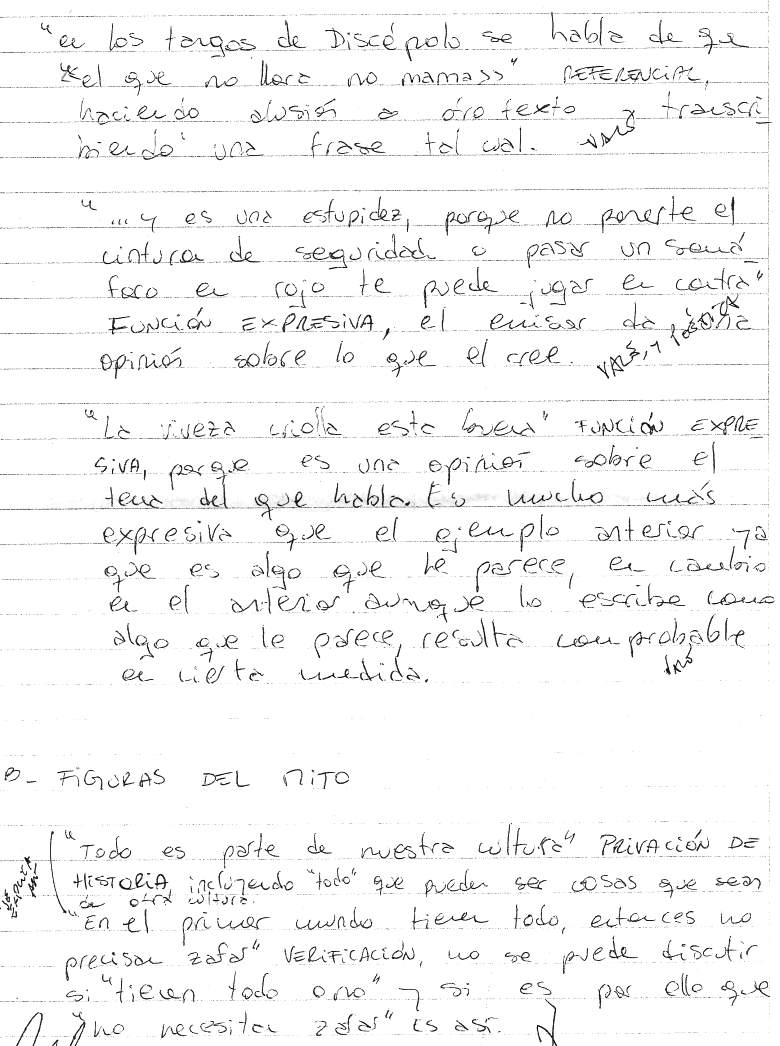 "en los tangos de Discépolo se habla de que
"el que no llora no mamass" REFERENCIAL,
haciendo alusión a otro texto y transcri-
biendo una frase tal cual.
"... y es una estupidez, porque no ponerte el
cinturon de seguridad o pasar un semá-
foro en rojo te puede jugar en contra"
FUNCIÓN EXPRESIVA, el emisor da una
opinión sobre lo que el cree.
"La viveza criolla esta buena" FUNCIÓN EXPRE-
SIVA, porque es una opinión sobre el
tema del que habla. Es mucho más
expresiva que el ejemplo anterior ya
que es algo que le parece, en cambio
en el anterior aunque lo escribe como
algo que le parece, resulta comprobable
en cierta medida.
B- FIGURAS DEL MITO
"Todo es parte de nuestra cultura" PRIVACIÓN DE
HISTORIA, incluyendo "todo" que pueden ser cosas que sean
de otra cultura.
"En el primer mundo tienen todo, entonces no
precisan zafar" VERIFICACIÓN, no se puede discutir
si "tienen todo o no" y si es por ello que
"no necesitan zafar" Es así.